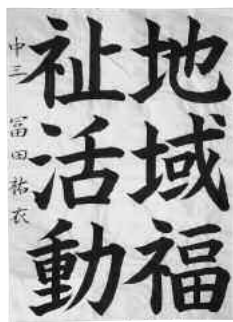 地域福
祉活動
中三 冨田祐衣